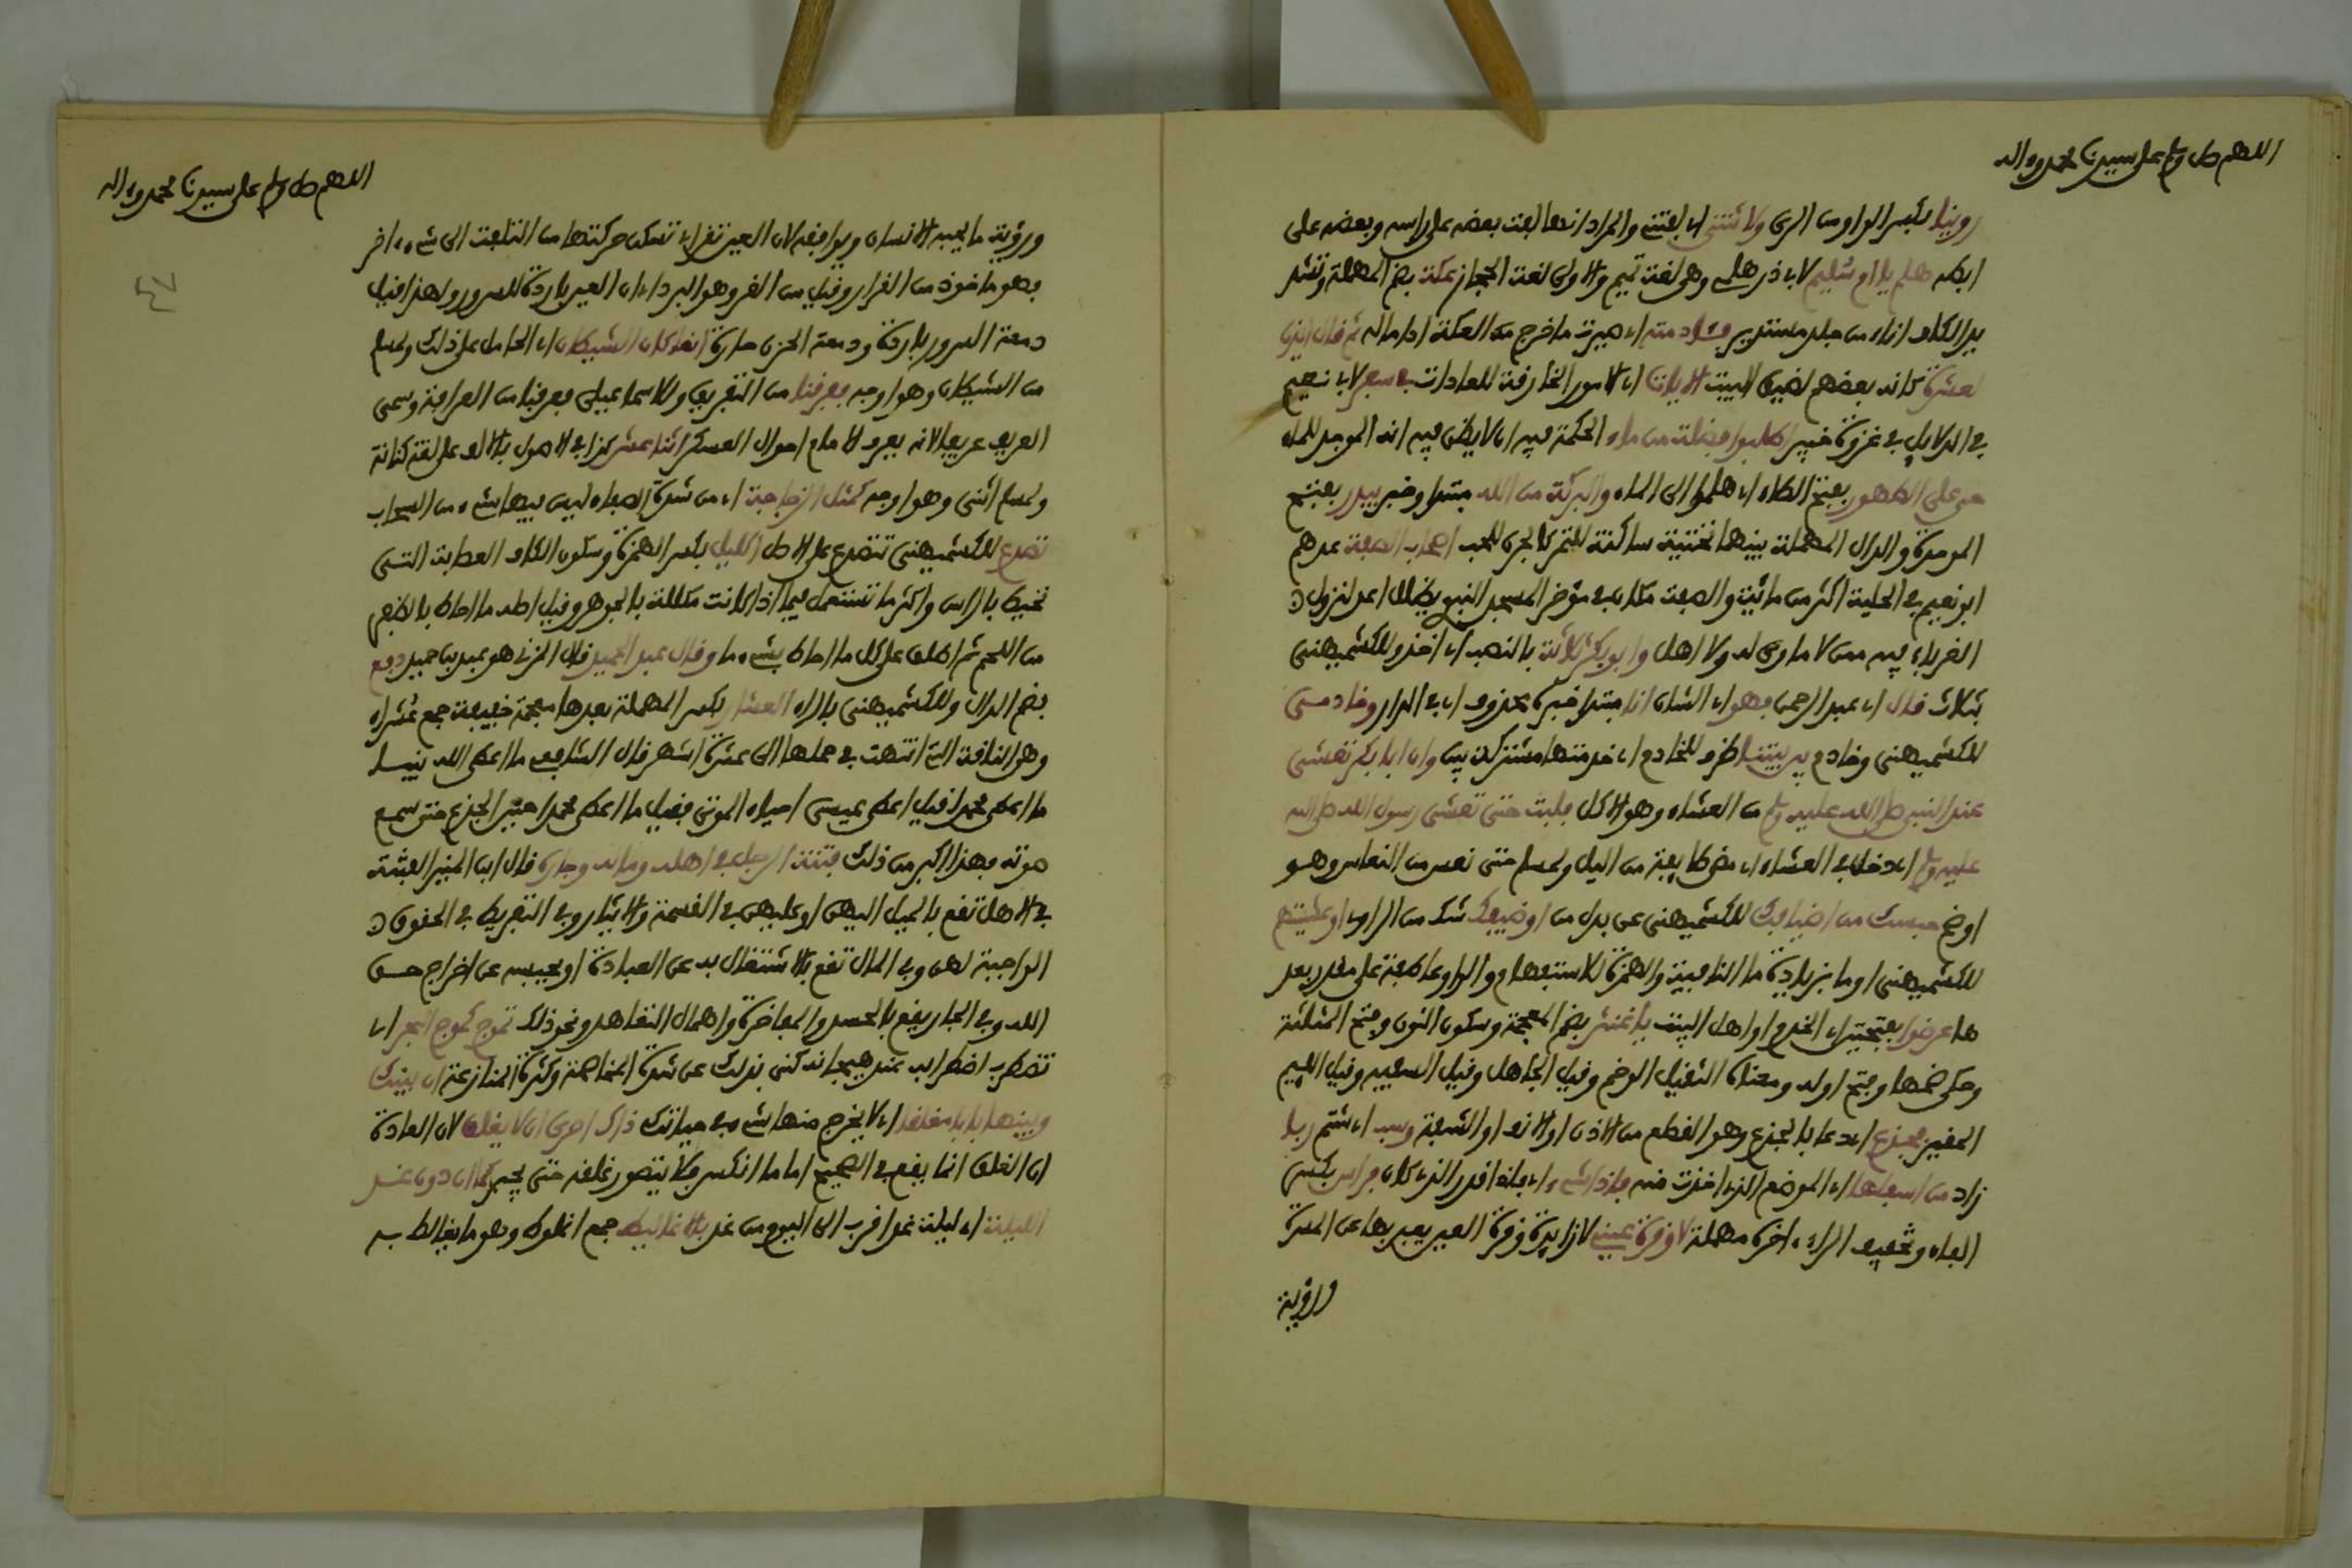 اللهم صل وسلم على سيدنا محمد وءاله
روينا بكسر الواو من الري ولاثتني اي لفتني والمراد انها لفت بعضه على راسه وبعضه على
ابطه هلم يا ام سليم لابي ذر هلمي وهي لغة تميم والاولى لغة الحجاز عكة بضم المهملة وتشد
يد الكاف اناء من جلد مستدير فادمته اي صيرت ما خرج من العكة اداما له ثم قال ايذن
لعشرة كانه بعضهم لضيق البيت الايات اي الامور الخارقة للعادات في سفر لابي نعيم
في الدلايل في غزوة خيبر اطلبوا فضلة من ماء الحكمة فيه ان لا يظن فيه انه الموجد للماء
حي على الطهور بفتح الطاء اي هلموا الى الماء والبركة من الله مبتدا وخبر بيدر بفتح
الموحدة والدال المهملة بينهما تحتية ساكنة للتمر كالجرن للحب اصحاب الصفة عدهم
ابو نعيم في الحلية اكثر من مائة والصفة مكان في موخر المسجد النبوي مظلل اعد لنزول
الغرباء فيه ممن لا ماوى له ولا اهل وابو بكر ثلاثة بالنصب اي اخذ وللكشميهني
بثلاث قال اي عبد الرحمن فهو اي الشان انا مبتدا خبره محذوف اي في الدار وخادمي
للكشميهني وخادم بين بيتنا ظرف للخادم اي خدمتها مشتركة بين وان ابا بكر تعشى
عند النبي صلى الله عليه وسلم من العشاء وهو الاكل فلبث حتى تعشى رسول الله صلى الله
عليه وسلم اي دخل في العشاء اي مضى طايفة من الليل ولمسلم حتى نعس من النعاس وهو
اوضح حبسك من اضيافك للكشميهني عن بدل من او ضيفك شك من الراوي او عشيتهم
للكشميهني او ما بزيادة ما النافية والهمزة للاستفهام والواو عاطفة على مقدر بعد
ها عرضوا بفتحتين اي الخدم او اهل البيت يا غنثر بضم المعجمة وسكون النون وفتح المثلثة
وحكي ضمها وفتح اوله ومعناه الثقيل الوخم وقيل الجاهل وقيل السفيه وقيل الليم
الحقير فجدع اي دعا بالجدع وهو القطع من الاذن او الانف او الشفة وسب اي شتم ربا
زاد من اسفلها اي الموضع الذي اخذت منه فاذا شيء اي فاذا قدر الذي كان فراس بكسر
الفاء وتخفيف الراء اخره مهملة لا وقرة عيني لا زايدة وقرة العين يعبر بها عن المسرة
ورؤية
اللهم صل وسلم على سيدنا محمد وءاله
ورؤية ما يحبه الانسان ويوافقه لان العين تقر اي تسكن حركتها من التلفت الى شيء اخر
فهو ماخوذ من القرار وقيل من القر وهو البرد اي ان العين باردة للسرور ولهذا قيل
دمعة السرور باردة ودمعة الحزن حارة انما كان الشيطان اي الحامل على ذلك ولمسلم
من الشيطان وهو اوجه فعرفنا من التعريف وللاسماعيلي فعرفنا من العرافة وسمي
العريف عريفا لانه يعرف الامام احوال العسكر اثنا عشر كذا في الاصول بالالف على لغة كنانة
ولمسلم اثنى وهو اوجه كمثل الزجاجة اي من شدة الصفاء ليس فيها شيء من السحاب
تصدع للكشميهني تتصدع على الاصل اكليل بكسر الهمزة وسكون الكاف العصابة التي
تحيط بالراس واكثر ما تستعمل فيما اذا كانت مكللة بالجوهر وقيل اصله ما احاط بالظفر
من اللحم ثم اطلق على كل ما احاط بشيء ما وقال عبد الحميد قال المزي هو عبد بن حميد دفع
بضم الدال وللكشميهني بالراء العشار بكسر المهملة بعدها معجمة خفيفة جمع عشراء
وهو الناقة التي انتهت في حملها الى عشرة اشهر قال الشافعي ما اعطى الله نبيا
ما اعطى محمدا فقيل اعطى عيسى احياء الموتى فقيل ما اعطى محمدا حنين الجذع حتى سمع
صوته فهذا اكبر من ذلك فتنة الرجل في اهله وماله وجاره قال ابن المنير الفتنة
في الاهل تقع بالميل اليهن او عليهن في القسمة والايثار وفي التفريط في الحقوق
الواجبة لهن وفي المال تقع بالاشتغال به عن العبادة او بحبسه عن اخراج حق
الله وفي الجار يقع بالحسد والمفاخرة واهمال التعاهد ونحو ذلك تموج كموج البحر اي
تضطرب اضطرابه عند هيجانه كنى بذلك عن شدة المخاصمة وكثرة المنازعة ان بينك
وبينها بابا مغلقا اي لا يخرج منها شيء في حياتك ذاك احرى ان لا يغلق لان العادة
ان الغلق انما يقع في الصحيح اما ما انكسر فلا يتصور غلقه حتى يجبر كما ان دون غد
الليلة اي ليلة غد اقرب الى اليوم من غد بالاغاليط جمع اغلوطة وهو ما يغالط به